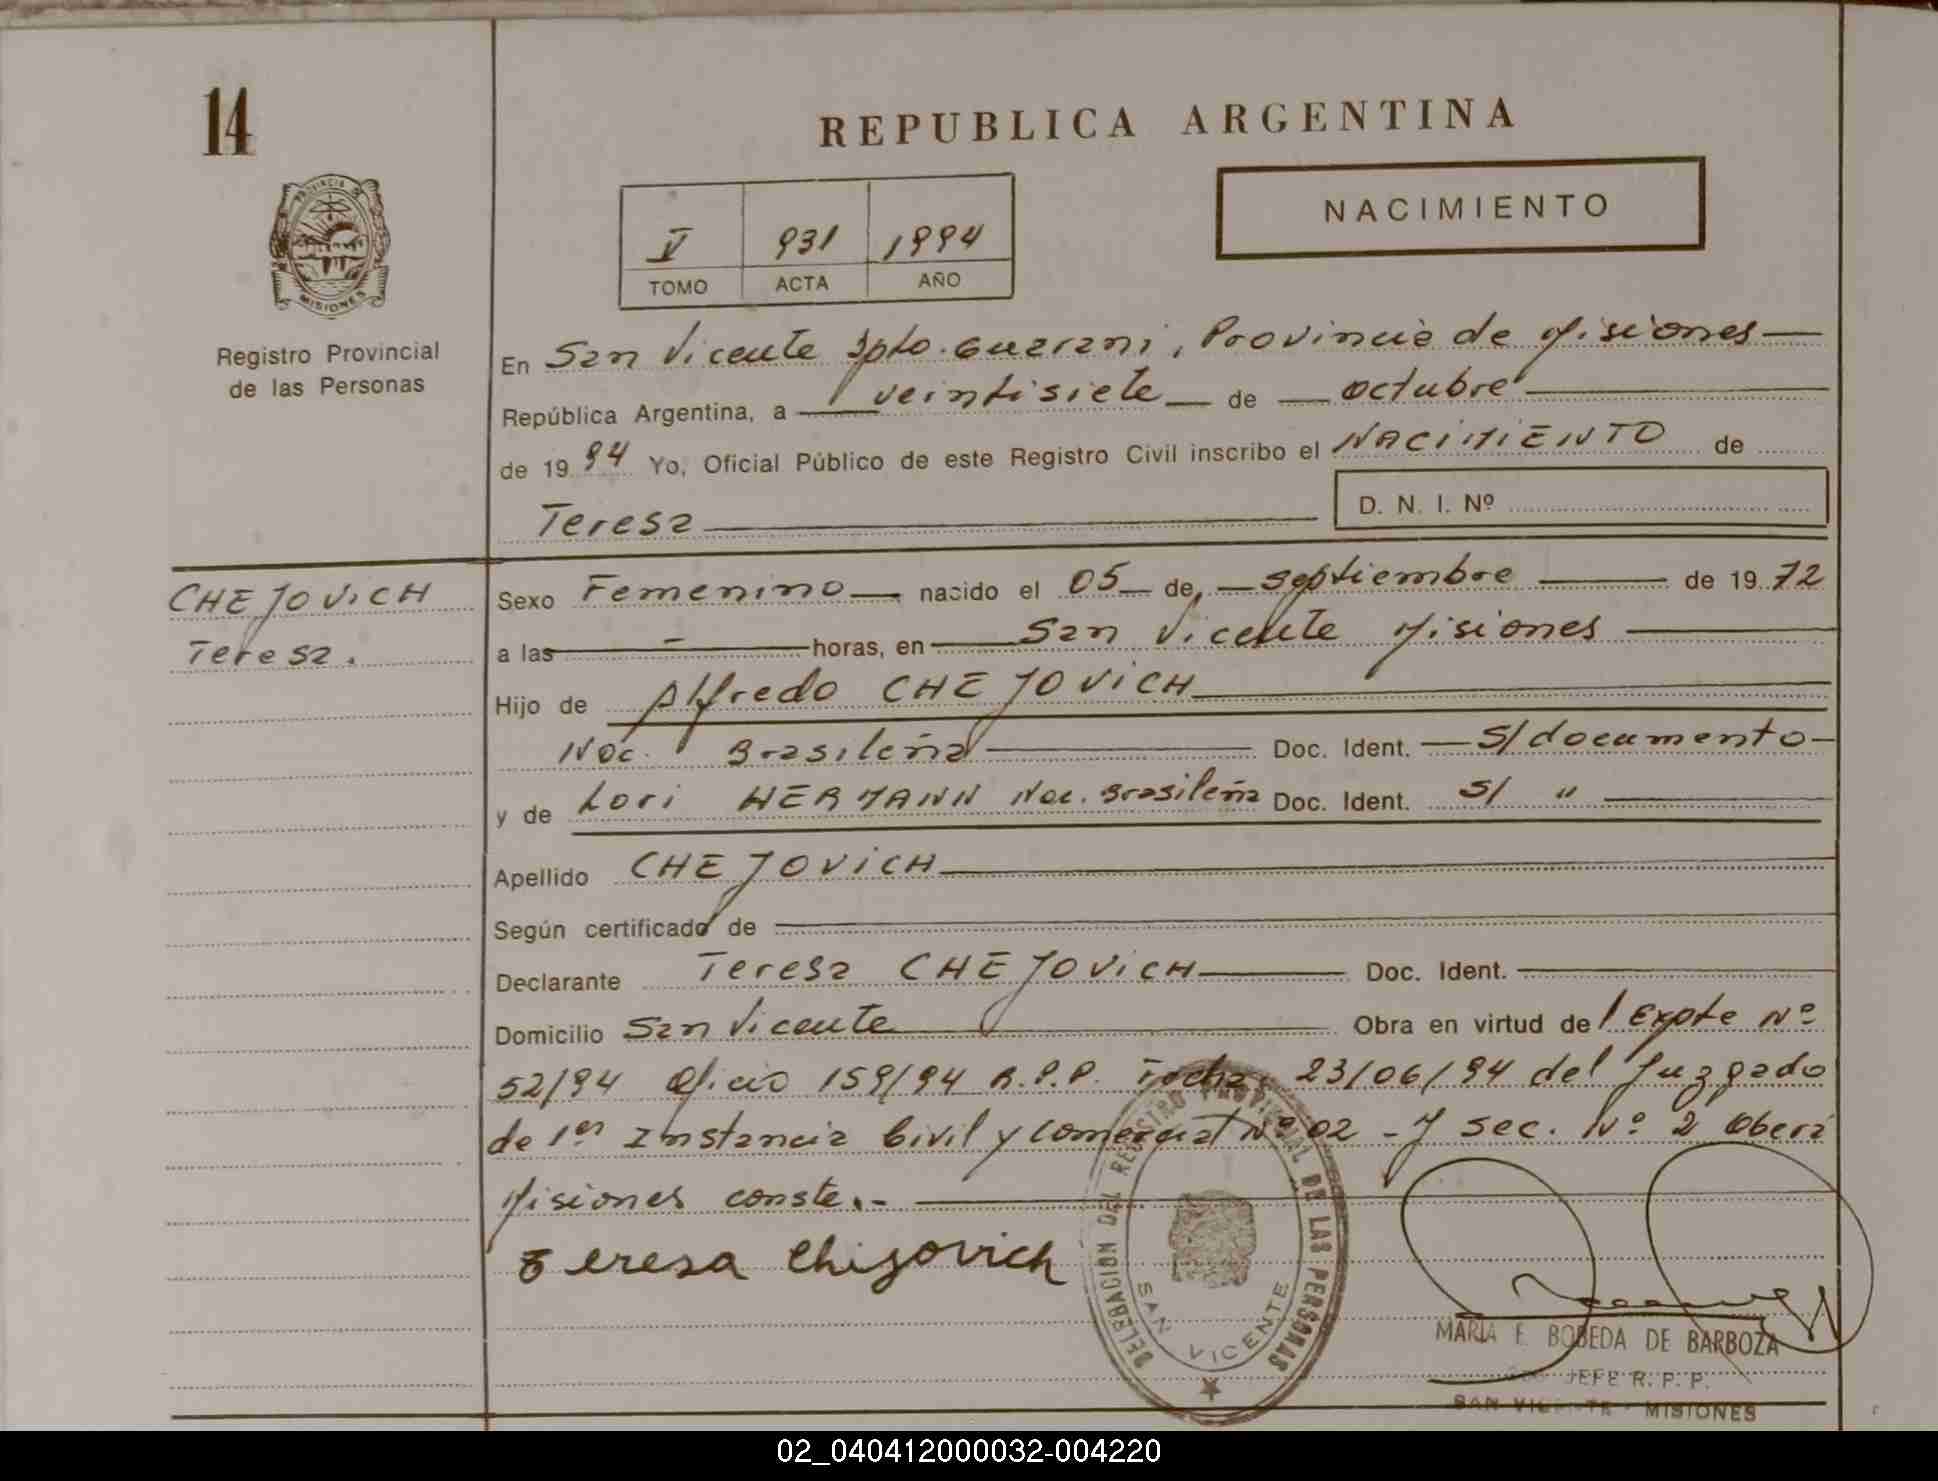 14
REPUBLICA ARGENTINA
PROVINCIA DE
MISIONES
Registro Provincial
de las Personas
NACIMIENTO
V 931 1994
TOMO ACTA AÑO
En San Vicente Dpto. Guarani, Provincia de Misiones
República Argentina, a veintisiete de octubre
de 1994 Yo, Oficial Público de este Registro Civil inscribo el NACIMIENTO de
Teresa D. N. I. Nº
CHEJOVICH
Teresa.
Sexo Femenino nacido el 05 de septiembre de 1972
a las - horas, en San Vicente Misiones
Hijo de Alfredo CHEJOVICH
Nac. Brasileña Doc. Ident. S/documento
y de Lori HERMANN Nac. Brasileña Doc. Ident. S/ "
Apellido CHEJOVICH
Según certificado de
Declarante Teresa CHEJOVICH Doc. Ident.
Domicilio San Vicente Obra en virtud del Expte Nº
52/94 Oficio 159/94 R.P.P. Fecha 23/06/94 del Juzgado
de 1er Instancia Civil y Comercial Nº 02 - y sec. Nº 2 Oberá
Misiones conste.-
Teresa Chijovich
DELEGACION DEL REGISTRO PROVINCIAL DE LAS PERSONAS
SAN VICENTE
MARIA E. BOBEDA DE BARBOZA
JEFE R.P.P.
SAN VICENTE - MISIONES
02_040412000032-004220